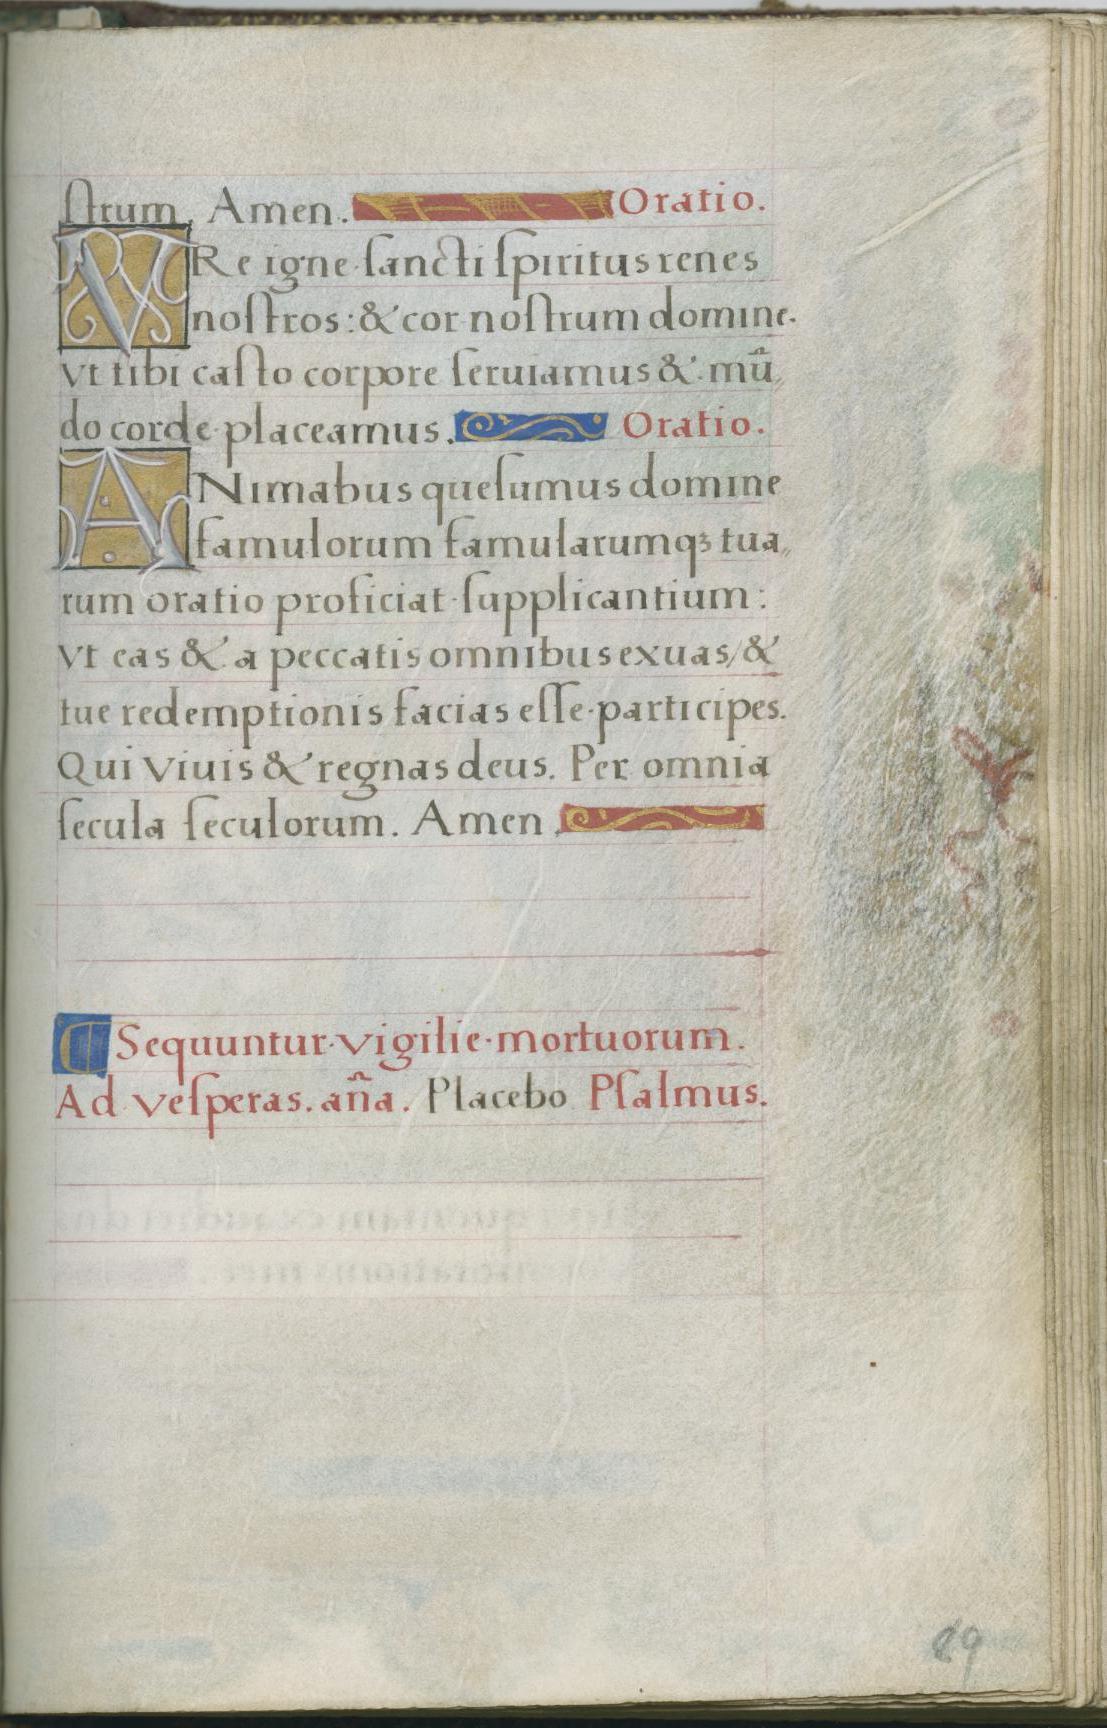 ſtrum, Amen. Oratio.
VRe igne ſancti ſpiritus renes
noſtros: & cor noſtrum domine.
vt tibi caſto corpore ſeruiamus & mũ,
do corde placeamus. Oratio.
ANimabus queſumus domine
famulorum famularumqꝫ tua,,
rum oratio proficiat ſupplicantium:
vt eas & a peccatis omnibus exuas/ &
tue redemptionis facias eſſe participes.
Qui viuis & regnas deus. Per omnia
ſecula ſeculorum. Amen.
Sequuntur vigilie mortuorum.
Ad veſperas. aña. Placebo Pſalmus.
89